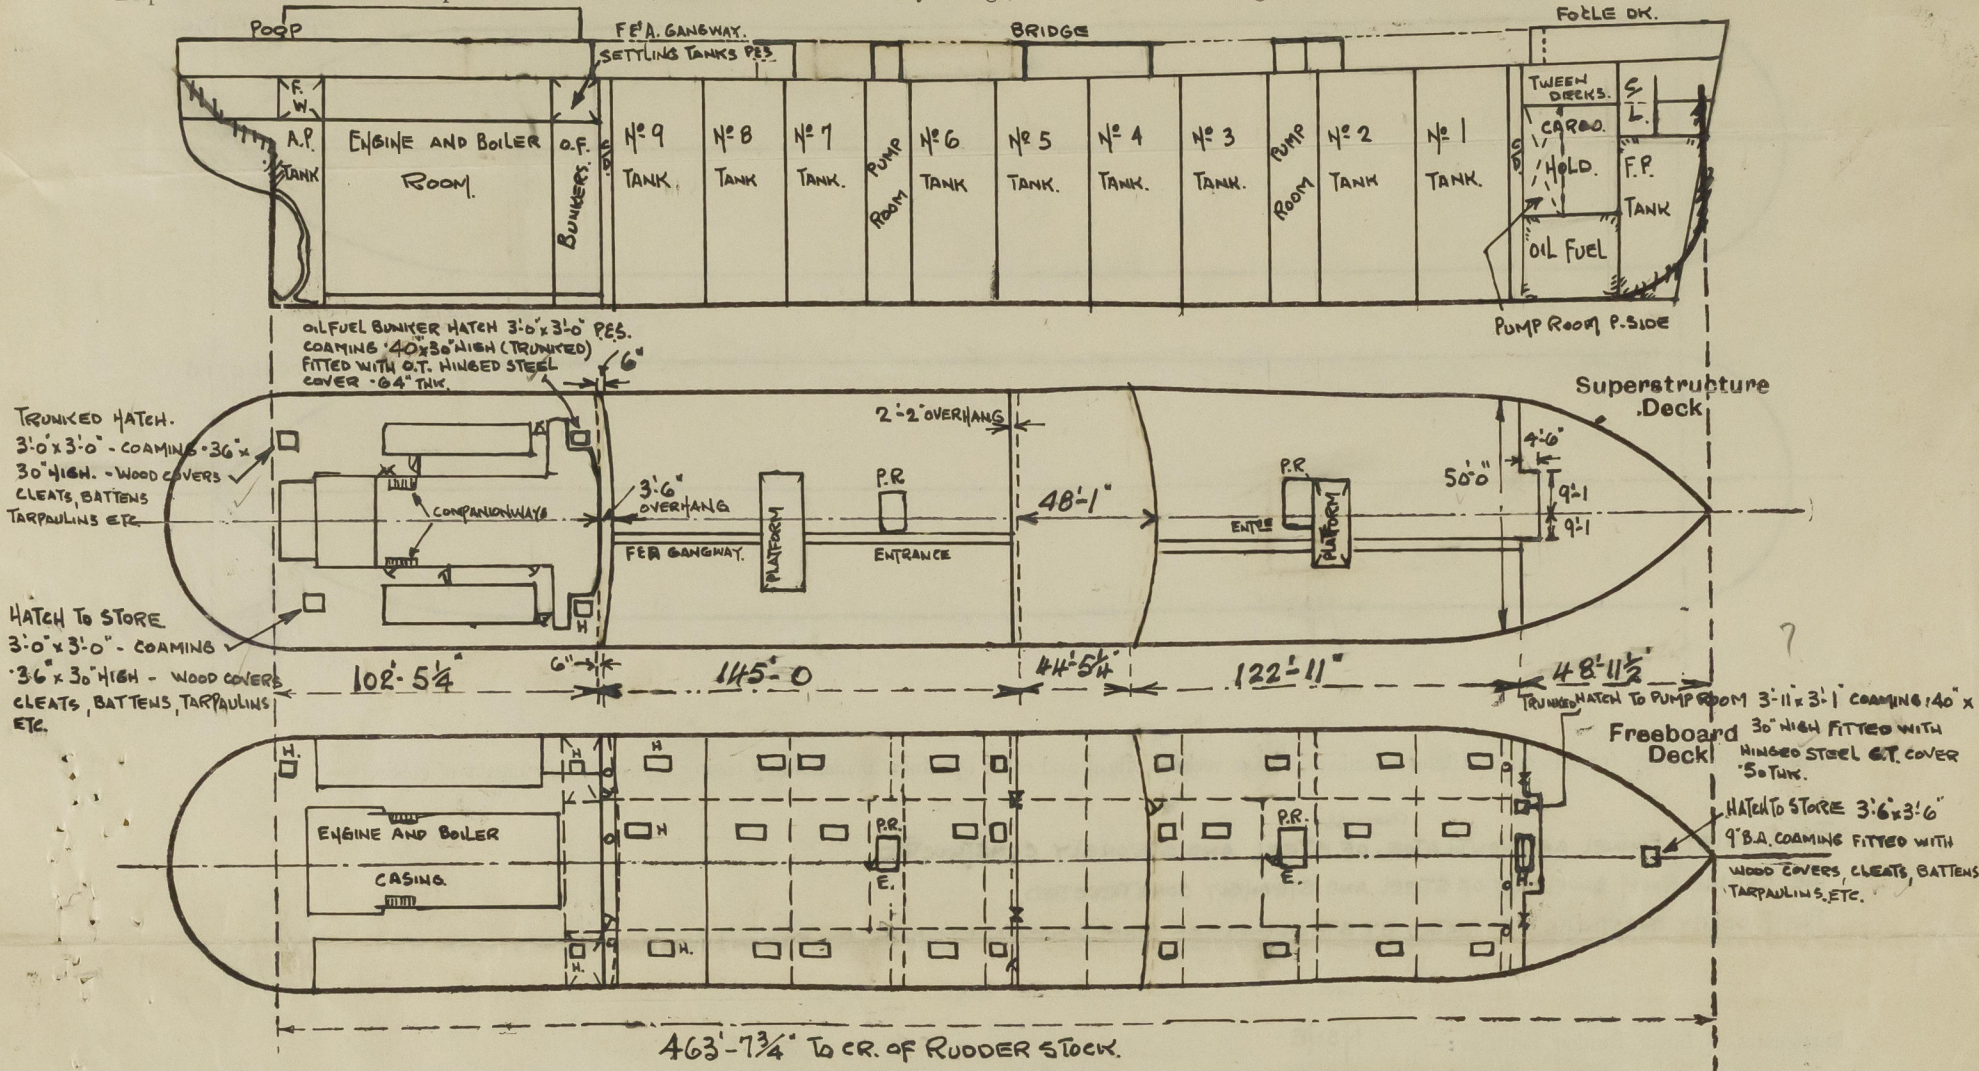 POOP
F&A. GANGWAY.
BRIDGE
FO'CLE DK.
SETTLING TANKS P&S
F.
W
A.P.
TANK
ENGINE AND BOILER
ROOM.
O.F.
BUNKERS.
C.D.
Nº 9
TANK
Nº 8
TANK
Nº 7
TANK.
PUMP
ROOM
Nº 6
TANK
Nº 5
TANK.
Nº 4
TANK.
Nº 3
TANK.
PUMP
ROOM
Nº 2
TANK
Nº 1
TANK.
C.D.
TWEEN
DECKS.
CARGO.
HOLD.
OIL FUEL
C/L.
F.P.
TANK
PUMP ROOM P.SIDE
OIL FUEL BUNKER HATCH 3'-0" x 3'-0" P.&S.
COAMING .40 x 30" HIGH (TRUNKED)
FITTED WITH O.T. HINGED STEEL
COVER .64" THK.
6"
Superstructure
Deck
TRUNKED HATCH.
3'-0" x 3'-0" - COAMING .36" x
30" HIGH. - WOOD COVERS
CLEATS, BATTENS
TARPAULINS ETC.
COMPANIONWAYS
3'-6"
OVERHANG
F&A GANGWAY.
PLATFORM
P.R
ENTRANCE
2'-2" OVERHANG
48'-1"
P.R.
ENTCE
PLATFORM
50'-0"
4'-6"
9'-1
9'-1
H
HATCH TO STORE
3'-0" x 3'-0" - COAMING
.36" x 30" HIGH - WOOD COVERS
CLEATS, BATTENS, TARPAULINS
ETC.
6"
102'-5¼"
145'-0
44'-5¼"
122'-11"
48'-11½"
?
TRUNKED HATCH TO PUMP ROOM 3'-11 x 3'-1 COAMING .40" x
30" HIGH FITTED WITH
HINGED STEEL O.T. COVER
.50 THK.
Freeboard
Deck
H.
H
H
ENGINE AND BOILER
CASING.
H
P.R.
E.
P.R.
E.
H.
H.
H.
HATCH TO STORE 3'-6" x 3'-6"
9" B.A. COAMING FITTED WITH
WOOD COVERS, CLEATS, BATTENS
TARPAULINS. ETC.
463'-7¾" TO CR. OF RUDDER STOCK.